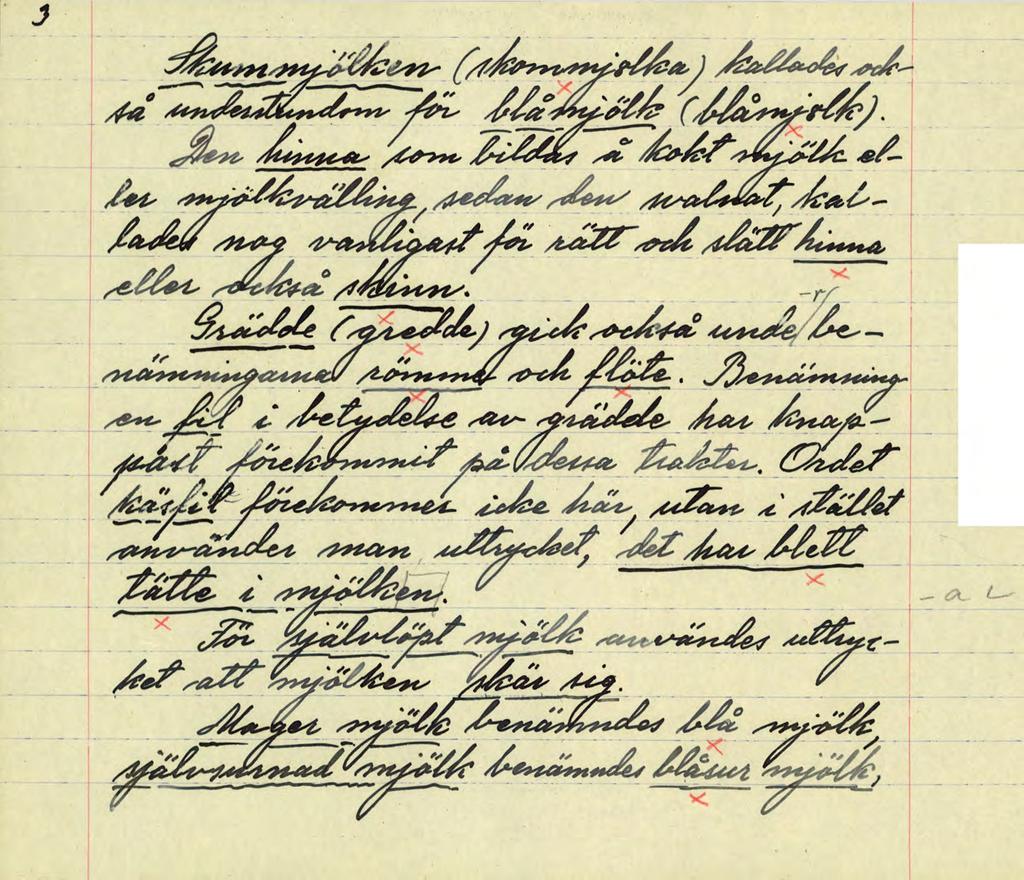 3
Skummjölken (skommjölka) kallades ock-
så understundom för blåmjölk (blåmjölk).
Den hinna som bildas å kokt mjölk el-
ler mjölkvälling, sedan den svalnat, kal-
lades nog vanligast för rätt och slätt hinna
eller också skinn.
-r/
Grädde (gredde) gick också unde/be-
nämningarna römme och flöte. Benämning
en fil i betydelse av grädde har knap-
past förekommit på dessa trakter. Ordet
käsfil förekommer icke här, utan i stället
använder man uttrycket, det har blett
tätte i mjölken.
-a L
För självlöpt mjölk användes uttryc-
ket att mjölken skär sig.
Mager mjölk benämndes blå mjölk,
självsurnad mjölk benämndes blåsur mjölk,